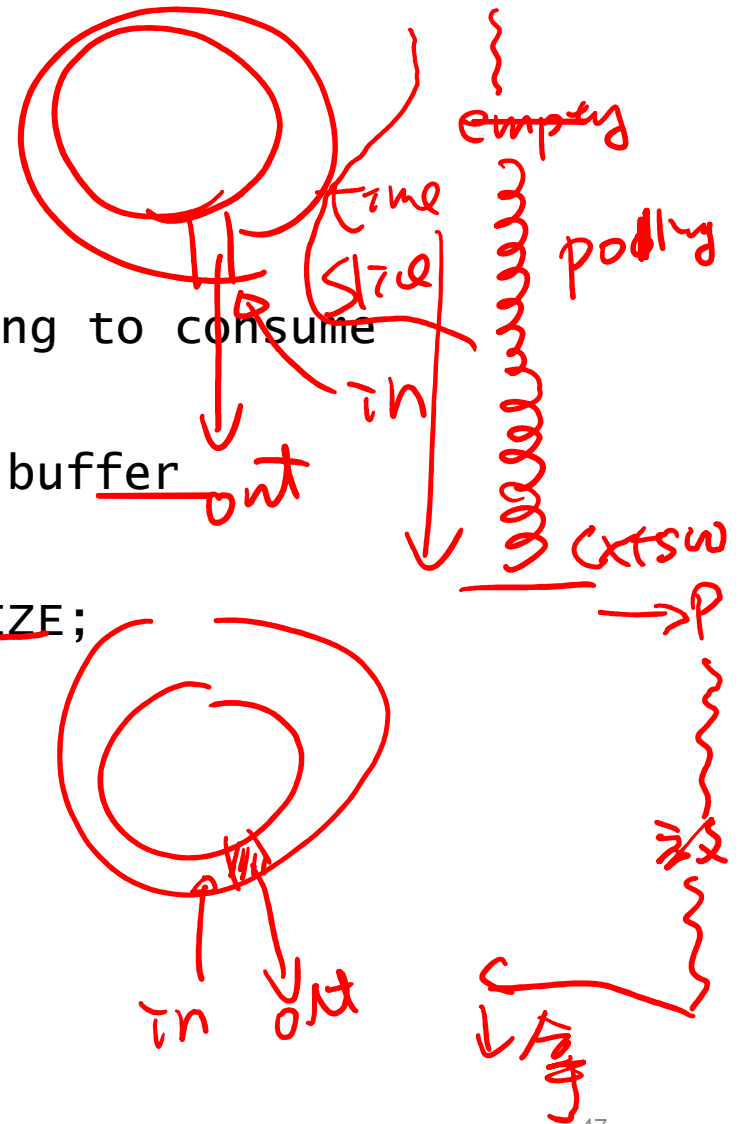 empty
time
polling
slice
ng to consume
in
buffer
out
cxtsw
IZE;
→P
in
out
C
47